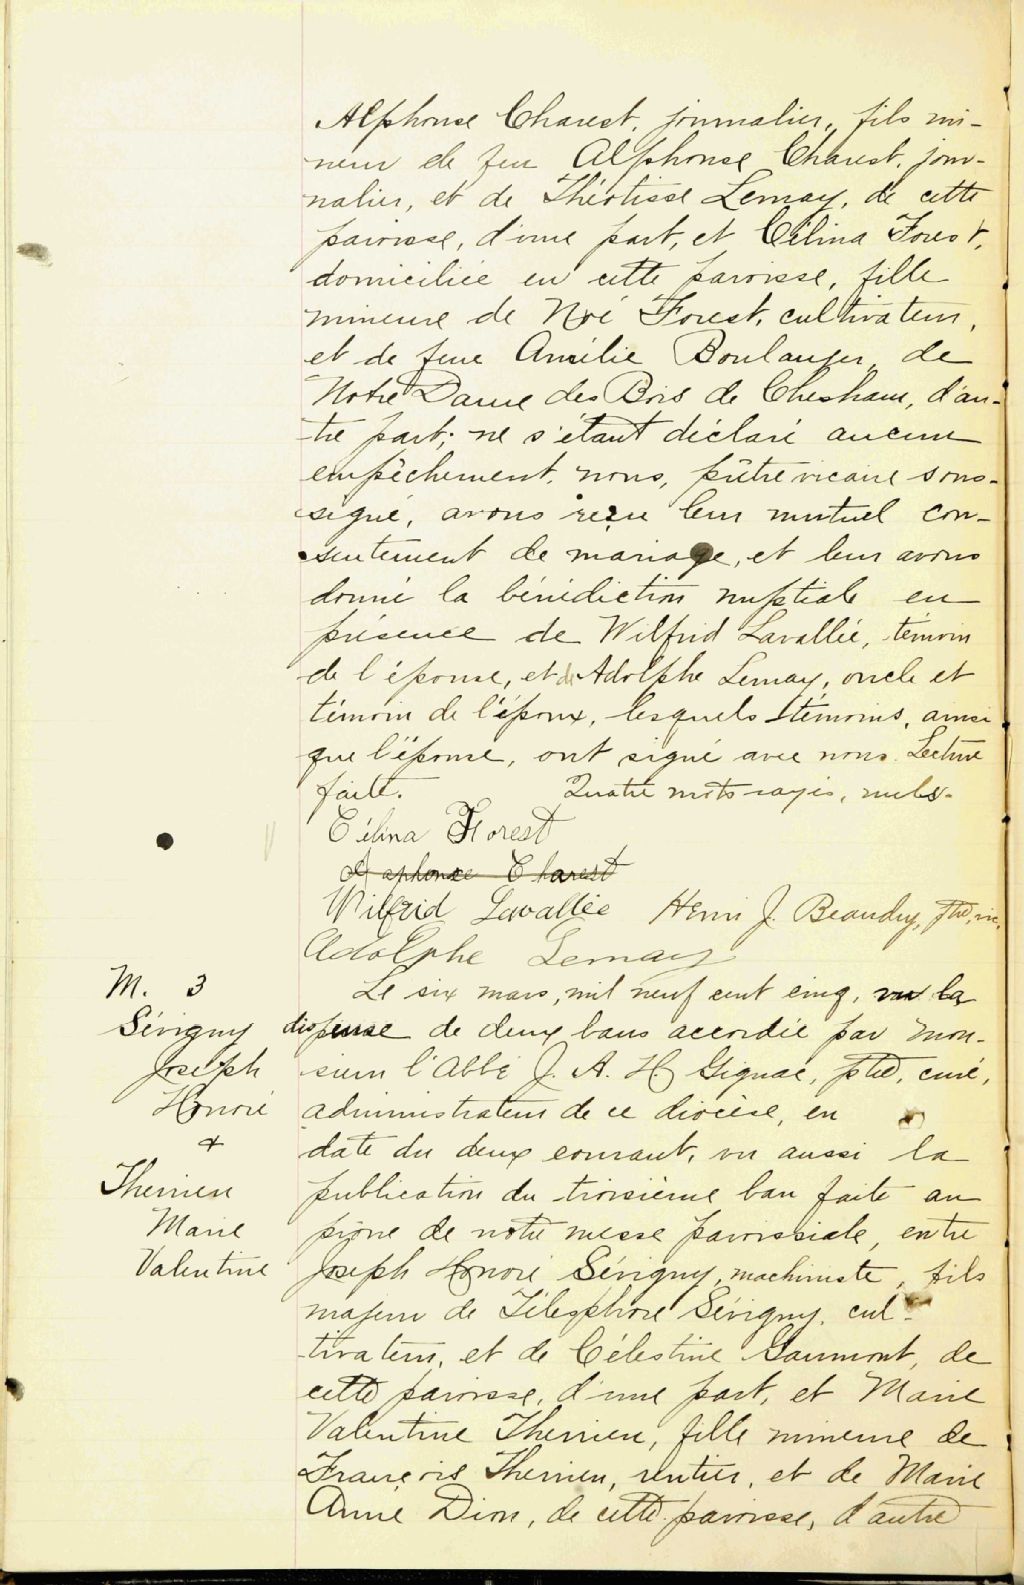 Alphonse Charest, journalier, fils mi-
neur de feu Alphonse Charest, jour-
nalier, et de Théotisse Lemay, de cette
paroisse, d'une part, et Célina Forest,
domiciliée en cette paroisse, fille
mineure de Noé Forest, cultivateur,
et de feue Amélie Boulanger, de
Notre Dame des Bois de Chesham, d'au-
tre part; ne s'étant déclaré aucun
empêchement, nous, prêtre vicaire sous-
signé, avons reçu leur mutuel con-
sentement de mariage, et leur avons
donné la bénédiction nuptiale en
présence de Wilfrid Lavallée, témoin
de l'épouse, et de Adolphe Lemay, oncle et
témoin de l'époux, lesquels témoins, ainsi
que l'épouse, ont signé avec nous. Lecture
faite. Quatre mots rayés, nuls.
Célina Forest
Alphonse Charest
Wilfrid Lavallée Henri J. Beaudry, ptre, vic.
Adolphe Lemay
M. 3
Sévigny
Joseph
Honoré
&
Therrien
Marie
Valentine
Le six mars, mil neuf cent cinq, vu la
dispense de deux bans accordée par mon-
sieur l'Abbé J. A. H Gignac, ptre, curé,
administrateur de ce diocèse, en
date du deux courant, vu aussi la
publication du troisième ban faite au
prône de notre messe paroissiale, entre
Joseph Honoré Sévigny, machiniste, fils
majeur de Télesphore Sévigny, cul-
tivateur, et de Célestine Gaumont, de
cette paroisse, d'une part, et Marie
Valentine Therrien, fille mineure de
François Therrien, rentier, et de Marie
Anne Dion, de cette paroisse, d'autre